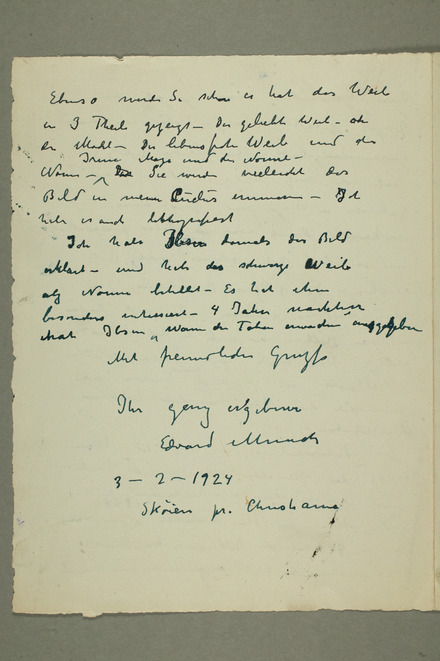 Ebenso wurde Sie schon es hat das Weib
in 3 Theile gezeigt – Das geliebte Weib – oder
die Madt – Das lebensfrohe Weib und die
Irene Maja und die Nonne –
Nonne – Sie werden vielleicht das
Bild in meinem Cyclus erinnern – Ich
habe es auch lithografiert
Ich habe Ibsen damals das Bild
erklärt – und habe das schwarze Weib
als Nonne betitelt – Es hat ihm
besonders interessiert – 4 Jahre nachher
hat Ibsen "Wann die Toten erwachen" ausgegeben
Mit freundlichen Gruss
Ihr ganz ergebener
Edvard Munch
3 – 2 – 1924
Skøien pr. Christiania